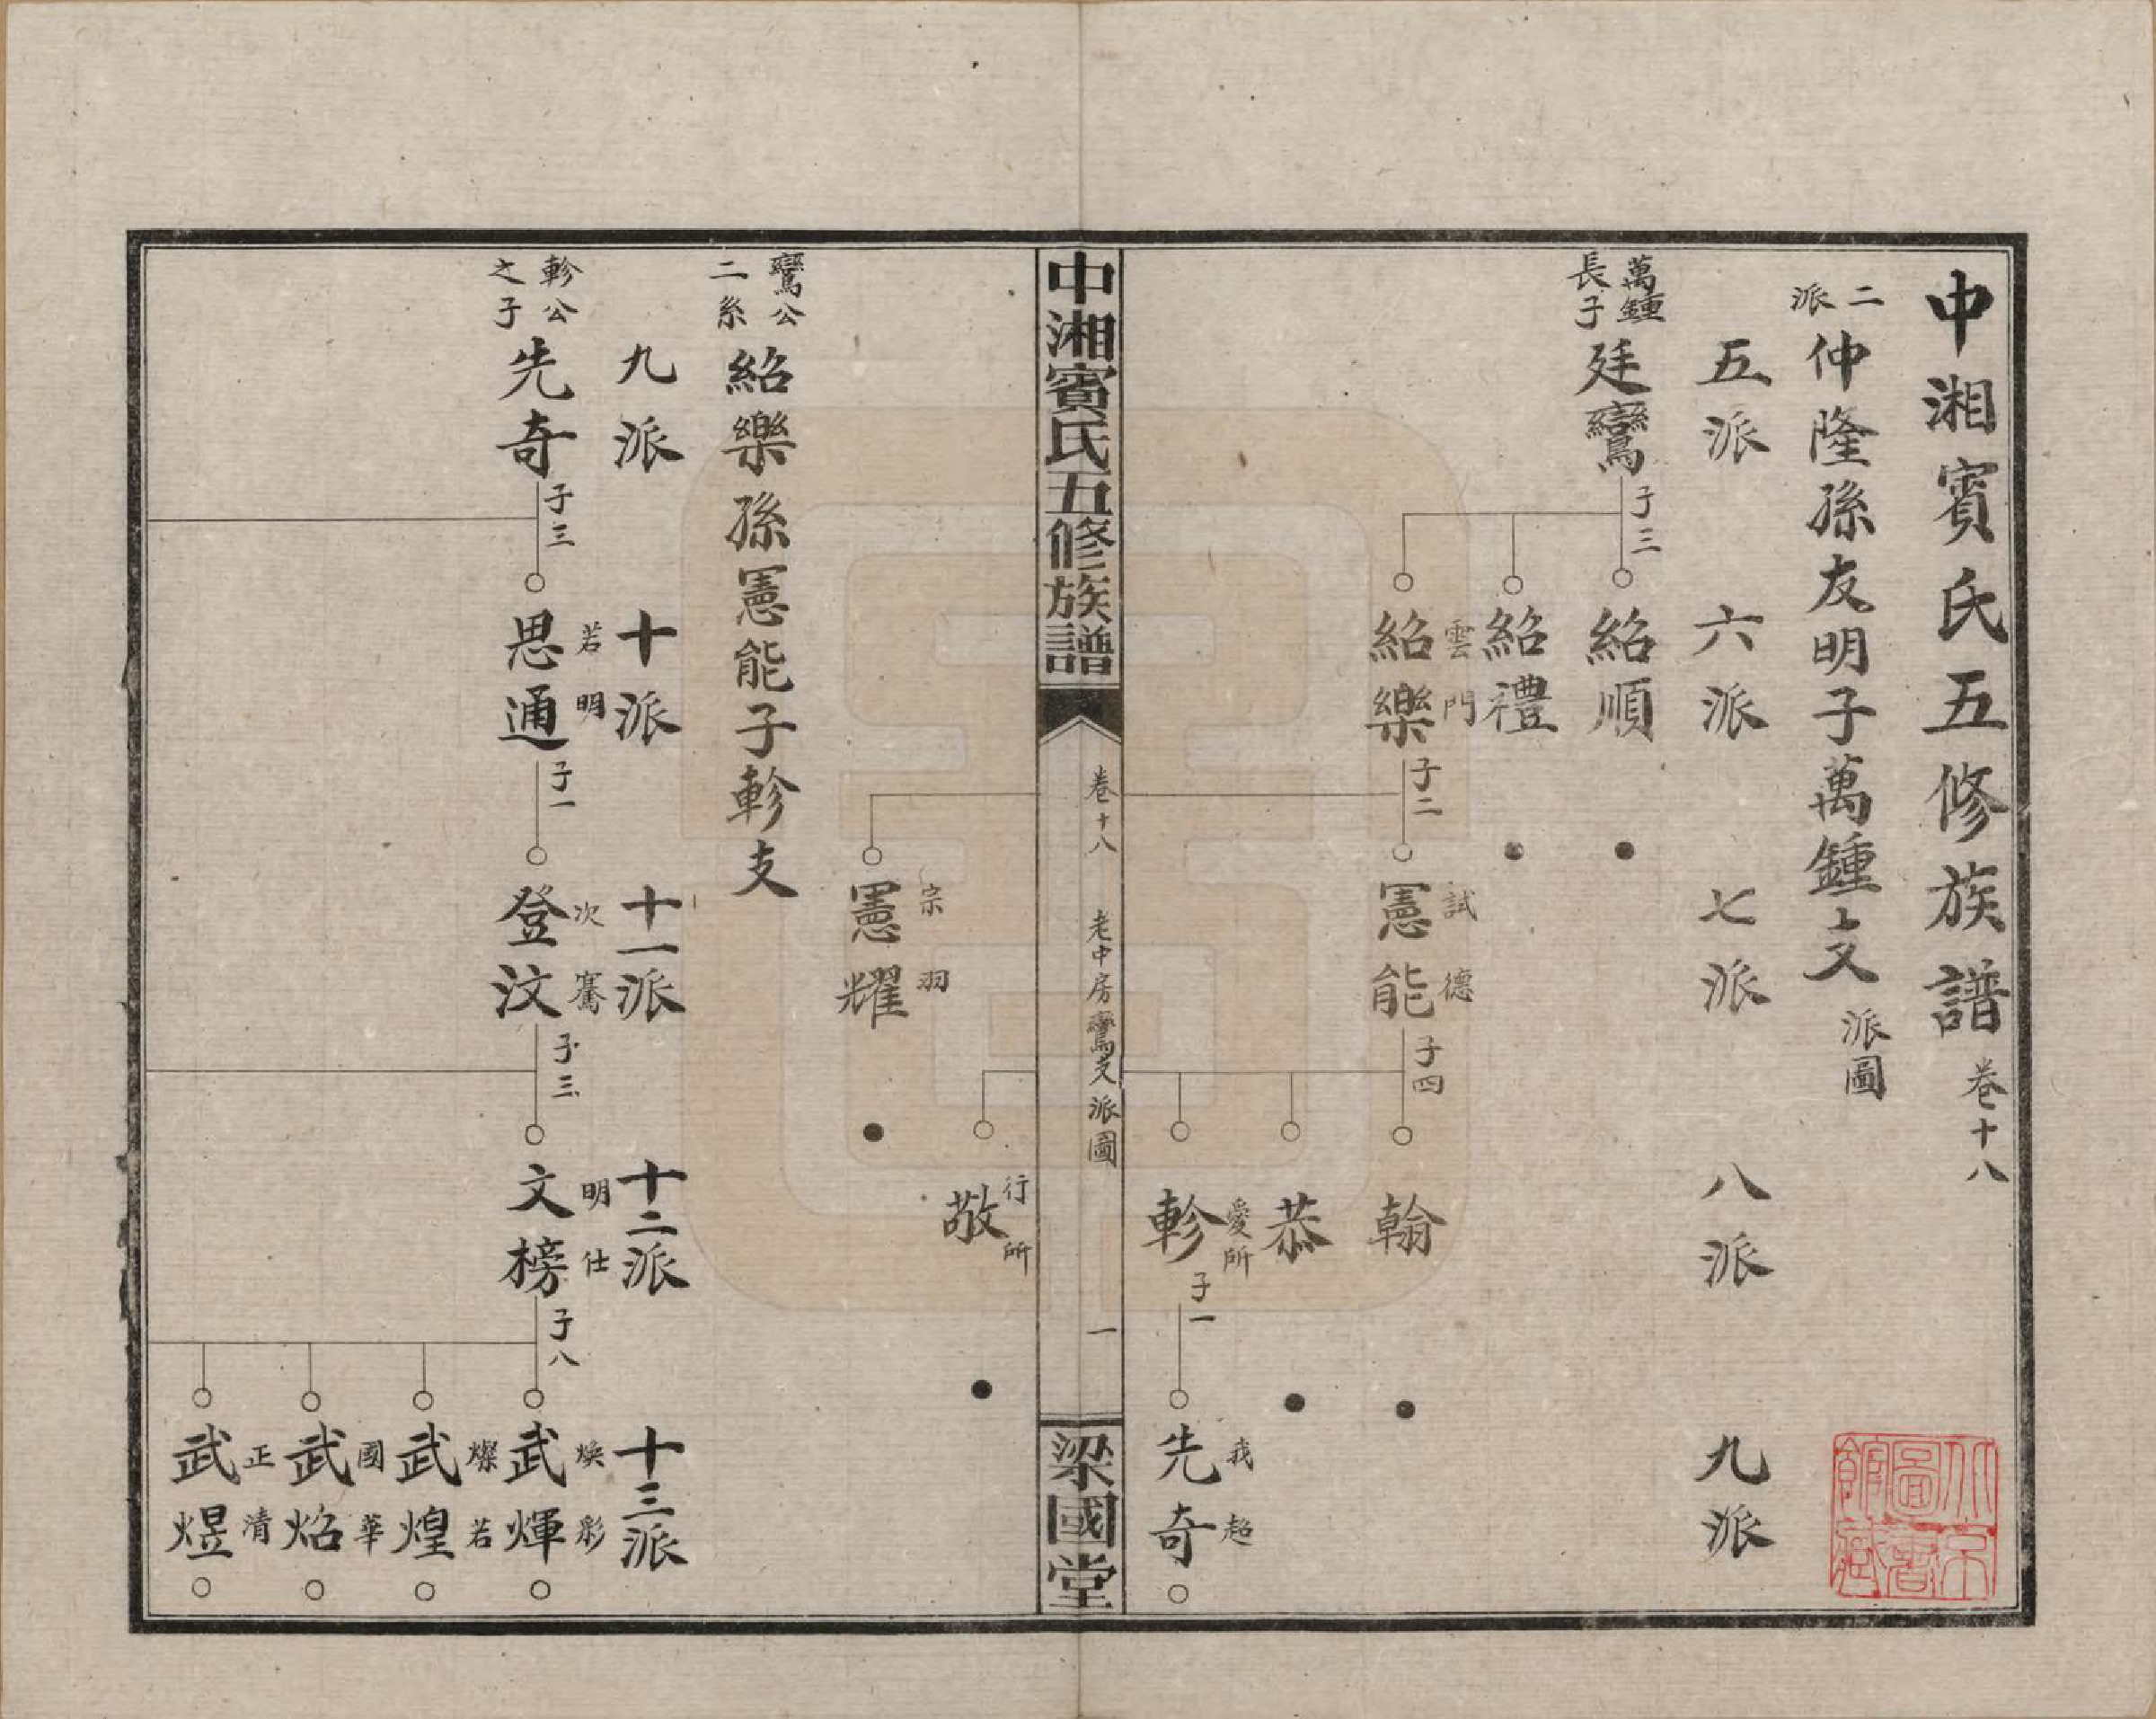 中湘賓氏五修族譜 卷十八
二派 仲隆孫友明子萬鍾支 派圖
五派 六派 七派 八派 九派
萬鍾長子 廷鸞 子三
紹順
紹禮
雲門 紹樂 子二
試德 憲能 子四
翰
恭
愛所 軫 子一
我超 先奇
北京圖書館藏
中湘賓氏五修族譜
卷十八 老中房鸞支派圖 一
梁國堂
行所 敬
宗羽 憲耀
鸞公二系 紹樂孫憲能子軫支
九派 十派 十一派 十二派 十三派
軫公之子 先奇 子三
若明 思通 子一
次騫 登汶 子三
明仕 文榜 子八
煥彩 武煇
燦若 武煌
國華 武焰
正清 武煜